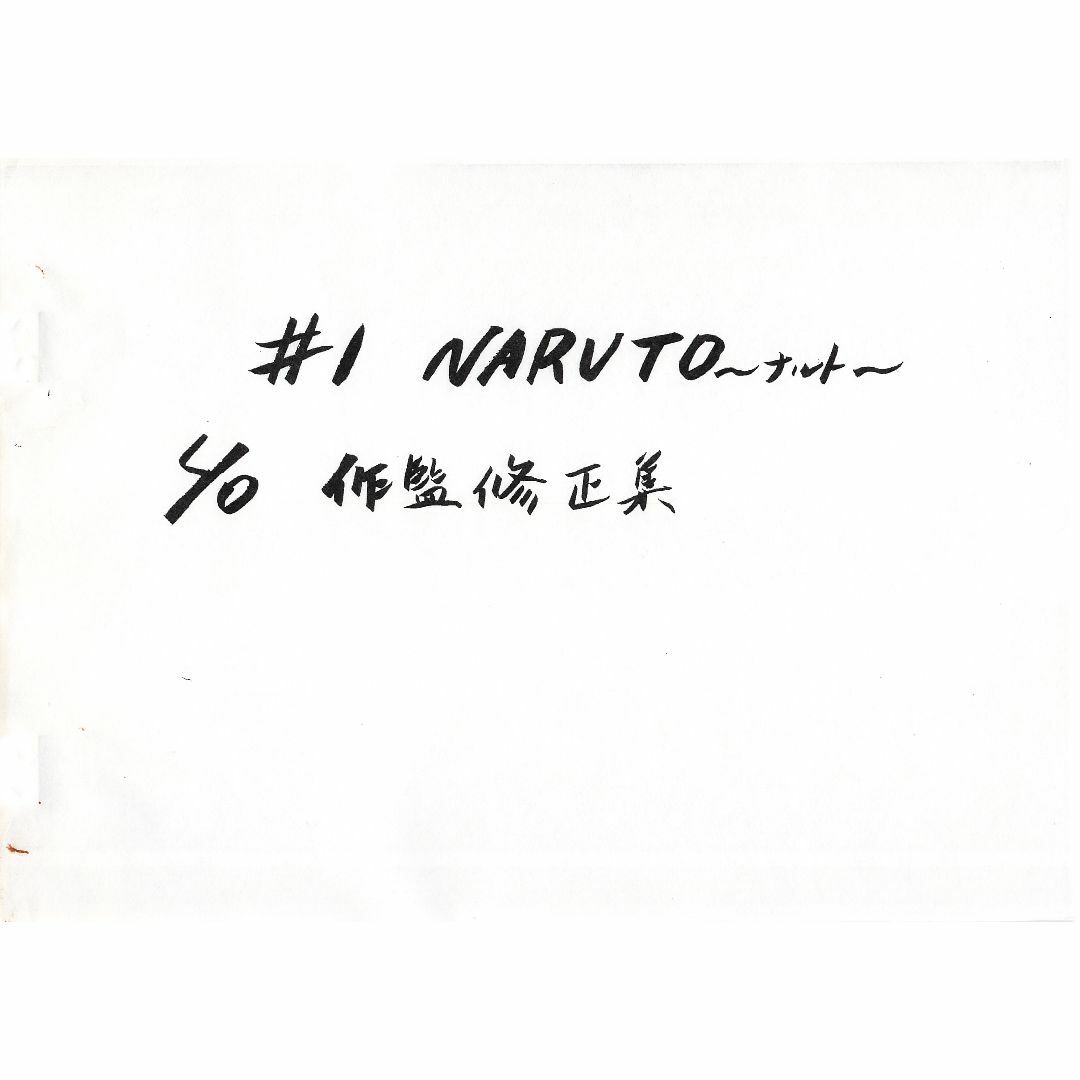 #1 NARUTO〜ナルト〜
作監修正集